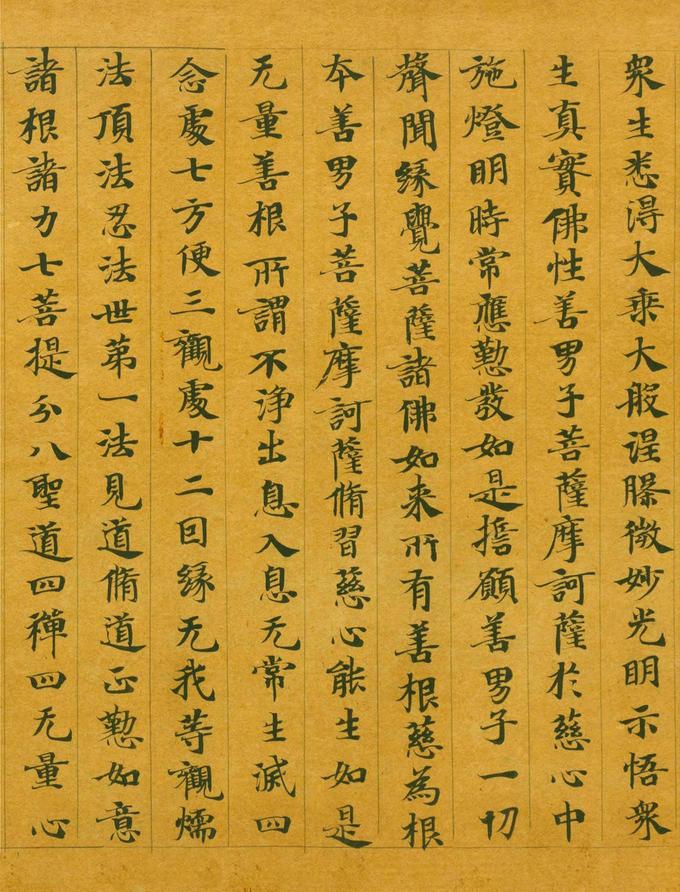 衆生悉得大乗大般涅槃微妙光明示悟衆
生真實佛性善男子菩薩摩訶薩於慈心中
施燈明時常應懃發如是擔願善男子一切
聲聞緣覺菩薩諸佛如来所有善根慈為根
本善男子菩薩摩訶薩脩習慈心能生如是
无量善根所謂不淨出息入息无常生滅四
念處七方便三觀處十二因緣无我等觀燸
法頂法忍法世第一法見道脩道正懃如意
諸根諸力七菩提分八聖道四禪四无量心